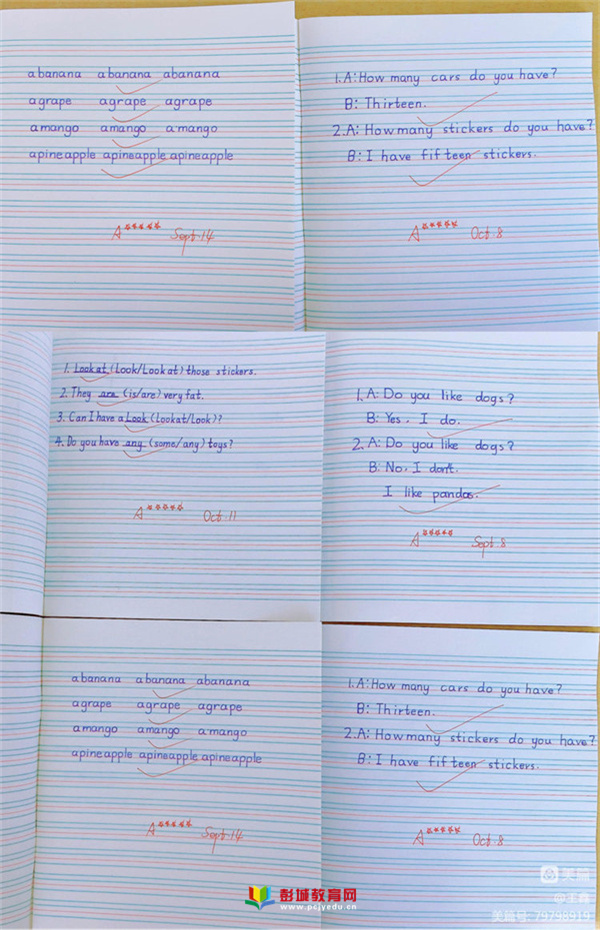 a banana a banana a banana
a grape a grape a grape
a mango a mango a mango
a pineapple a pineapple a pineapple
A***** Sept.14
1. A: How many cars do you have?
B: Thirteen.
2. A: How many stickers do you have?
B: I have fifteen stickers.
A***** Oct.8
1. Look at (Look/Look at) those stickers.
2. They are (is/are) very fat.
3. Can I have a Look (look at/Look)?
4. Do you have any (some/any) toys?
A***** Oct.11
1. A: Do you like dogs?
B: Yes, I do.
2. A: Do you like dogs?
B: No, I don't.
I like pandas.
A***** Sept.8
a banana a banana a banana
a grape a grape a grape
a mango a mango a mango
a pineapple a pineapple a pineapple
A***** Sept.14
1. A: How many cars do you have?
B: Thirteen.
2. A: How many stickers do you have?
B: I have fifteen stickers.
A***** Oct.8
彭城教育网
www.pcjyedu.cn
美篇
美篇号: 79798919